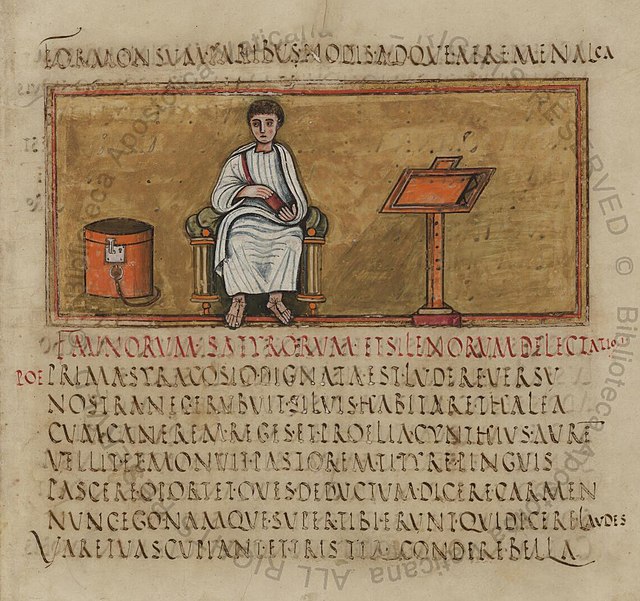 FORMONSVM·PARIBVS·NODIS·ADQVE·AERE·MENALCA
FAVNORVM·SATYRORVM·ET·SILENORVM·DELECTATIO
POE PRIMA·SYRACOSIO·DIGNATA·EST·LVDERE·VERSV
NOSTRA·NEC·ERVBVIT·SILVIS·HABITARE·THALEA
CVM·CANEREM·REGES·ET·PROELIA·CYNTHIVS·AVRE
VELLIT·ET·EMONVIT·PASTOREM·TITYRE·PINGVIS
PASCERE·OPORTET·OVES·DEDVCTVM·DICERE·CARMEN
NVNC·EGO·NAMQVE·SVPER·TIBI·ERVNT·QVI·DICERE·LAVDES
VARE·TVAS·CVPIANT·ET·TRISTIA·CONDERE·BELLA
Biblioteca Apostolica Vaticana ALL RIGHTS RESERVED ©